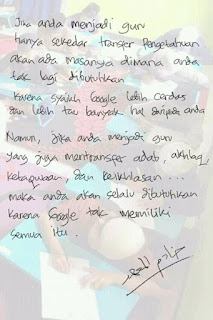 Jika anda menjadi guru
hanya sekedar transfer pengetahuan
akan ada masanya dimana anda
tak lagi dibutuhkan
karena syaikh Google lebih cerdas
dan lebih tau banyak hal daripada anda
Namun, jika anda menjadi guru
yang juga mentransfer adab, akhlaq,
ketaqwaan, dan keikhlasan ...
maka anda akan selalu dibutuhkan
karena Google tak memiliki
semua itu.